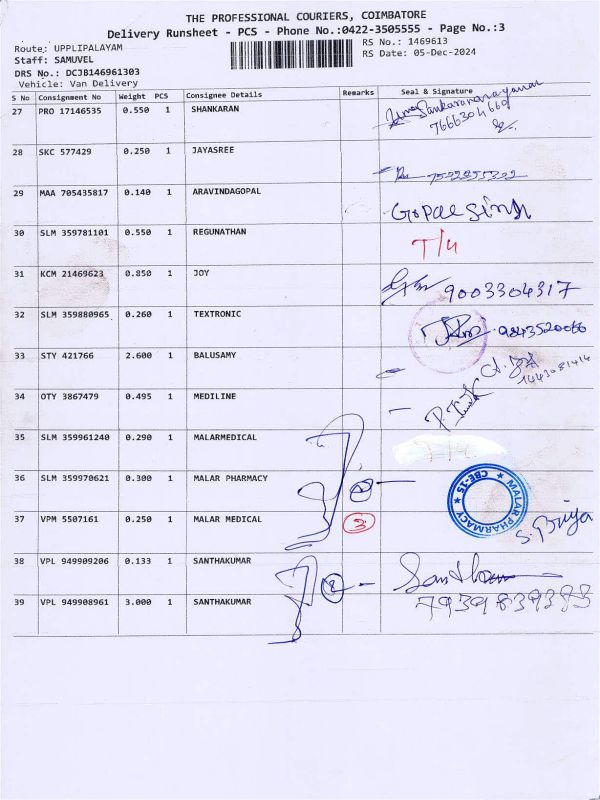 THE PROFESSIONAL COURIERS, COIMBATORE
Delivery Runsheet - PCS - Phone No.:0422-3505555 - Page No.:3
Route: UPPLIPALAYAM
RS No.: 1469613
Staff: SAMUVEL
RS Date: 05-Dec-2024
DRS No.: DCJB146961303
Vehicle: Van Delivery
S No Consignment No Weight PCS Consignee Details Remarks Seal & Signature
27 PRO 17146535 0.550 1 SHANKARAN Sankaranarayanan
7666304660
28 SKC 577429 0.250 1 JAYASREE
29 MAA 705435817 0.140 1 ARAVINDAGOPAL GOPAL Singh
30 SLM 359781101 0.550 1 REGUNATHAN T/4
31 KCM 21469623 0.850 1 JOY 9003304317
32 SLM 359880965 0.260 1 TEXTRONIC
33 STY 421766 2.600 1 BALUSAMY
34 OTY 3867479 0.495 1 MEDILINE
35 SLM 359961240 0.290 1 MALARMEDICAL
36 SLM 359970621 0.300 1 MALAR PHARMACY
MALAR PHARMACY CBE-15
37 VPM 5507161 0.250 1 MALAR MEDICAL 3 S. Priya
38 VPL 949909206 0.133 1 SANTHAKUMAR 2
39 VPL 949908961 3.000 1 SANTHAKUMAR 7939839383